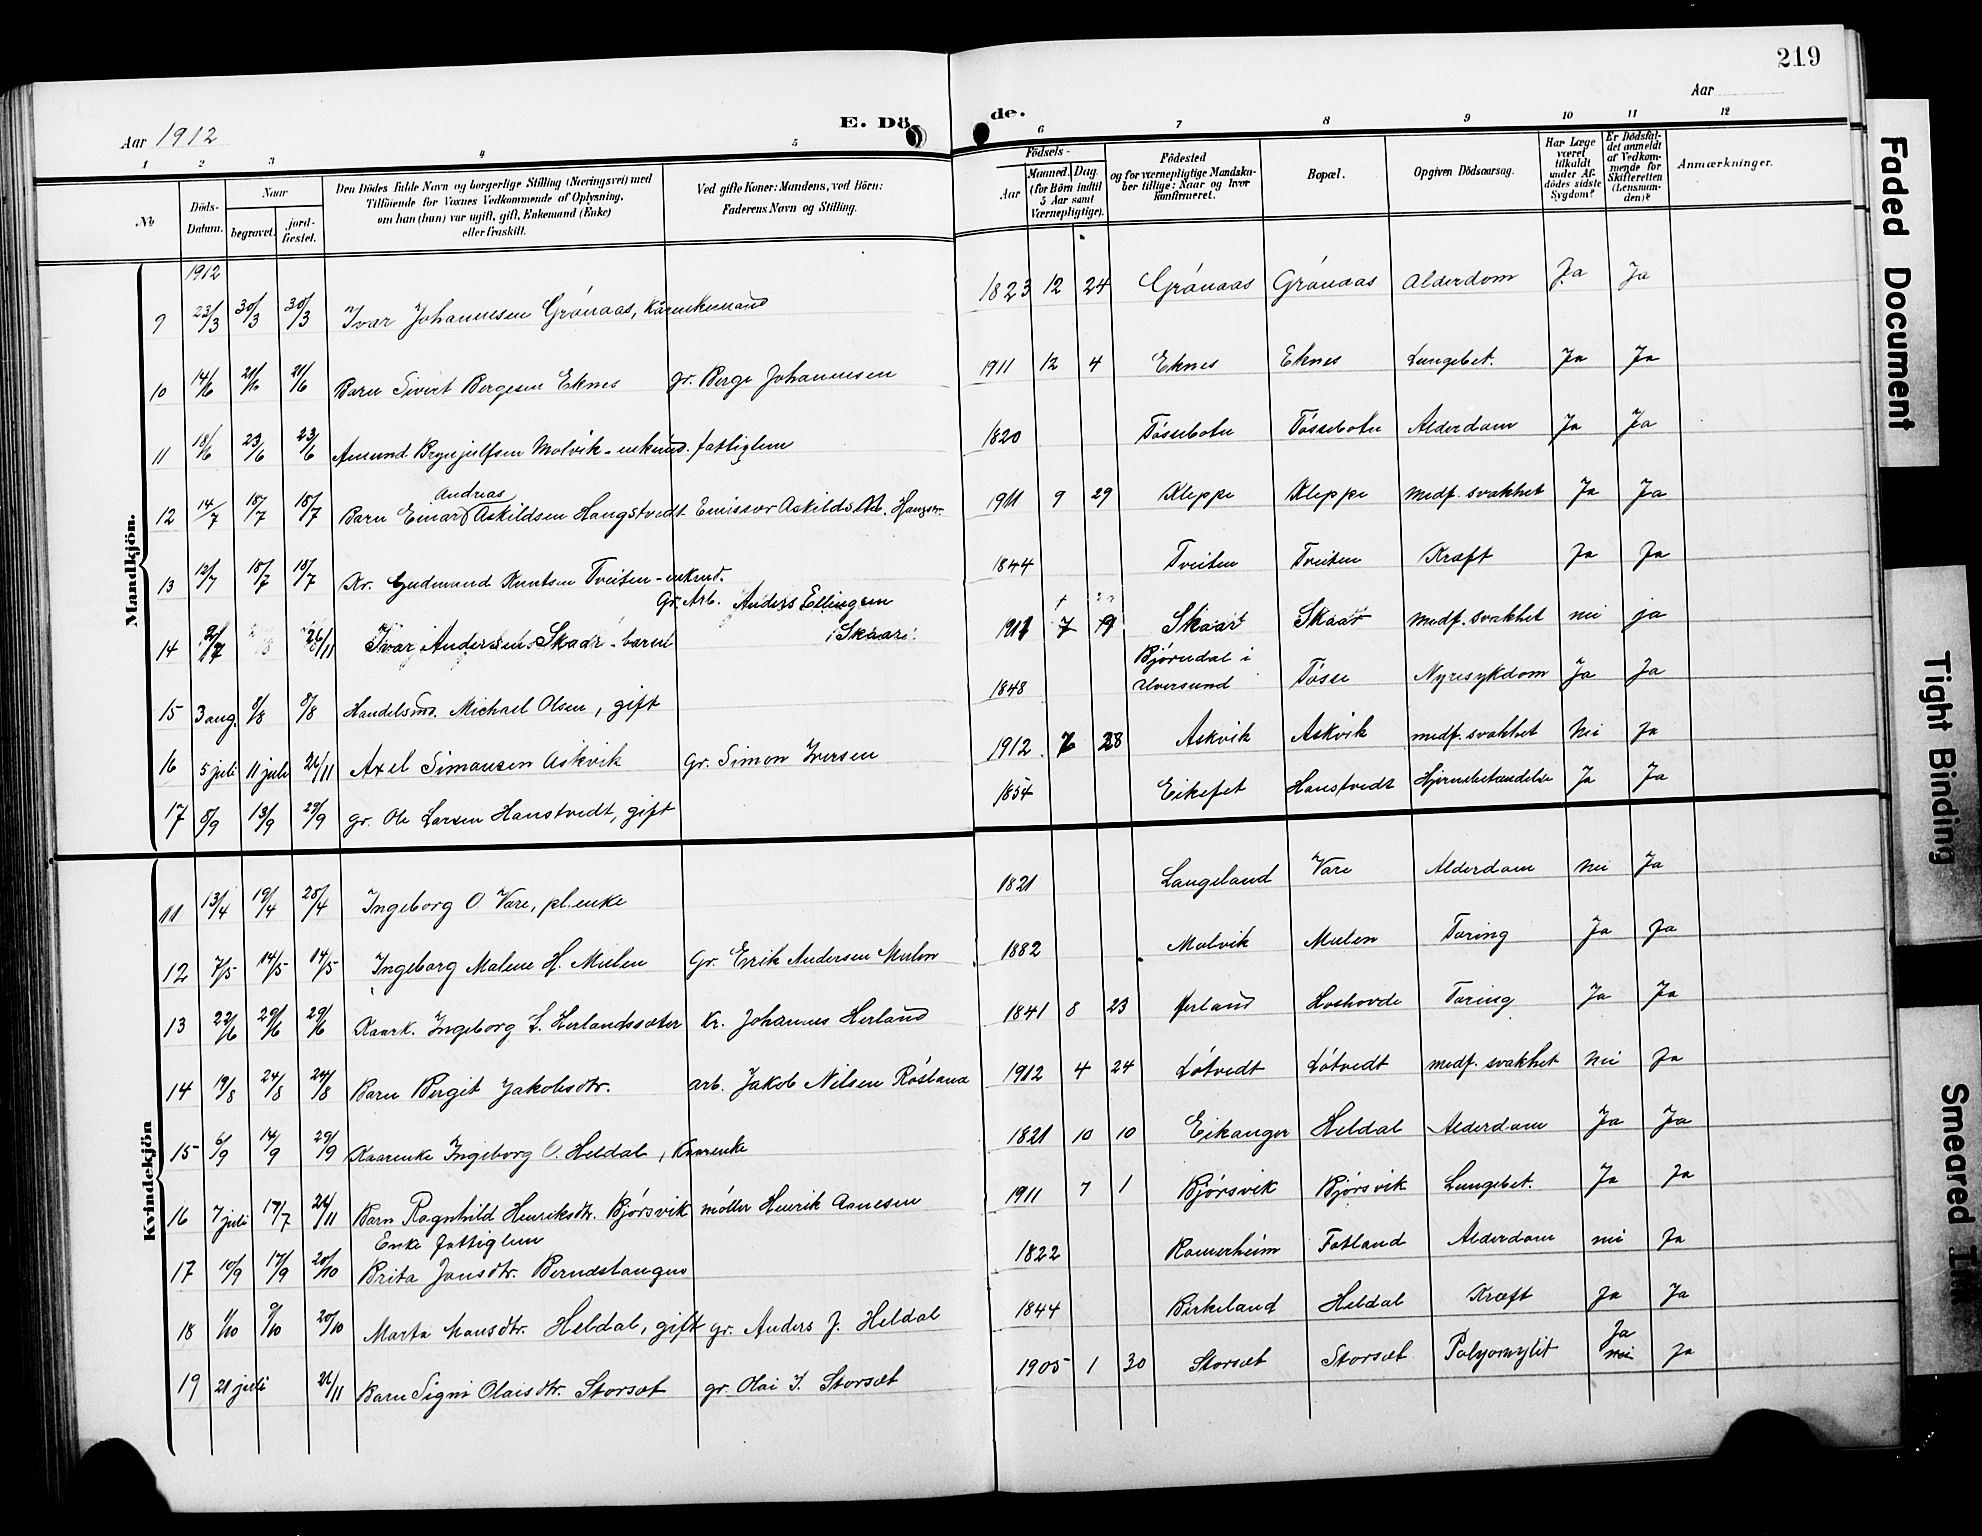 219
Aar 1912
E. Döde.
Aar
1 2 3 4 5 6 7 8 9 10 11 12
No.
Döds-Datum.
Naar
begravet.
jordfæstet.
Den Dödes fulde Navn og borgerlige Stilling (Næringsvei) med
Tilföiende for Voxnes Vedkommende af Oplysning,
om han (hun) var ugift, gift, Enkemand (Enke)
eller fraskilt.
Ved gifte Koner: Mandens, ved Börn:
Faderens Navn og Stilling.
Födsels-
Aar
Maaned. Dag.
(for Börn indtil
5 Aar samt
Værnepligtige).
Födested
og for værnepligtige Mandska-
ber tillige: Naar og hvor
konfirmeret.
Bopæl.
Opgiven Dödsaarsag.
Har Læge
været
tilkaldt
under Af-
dödes sidste
Sygdom?
Er Dödsfal-
det anmeldt
af Vedkom-
mende for
Skifteretten
(Lensman-
den)?
Anmærkninger.
Mandkjön.
1912
9 23/3 30/3 30/3 Ivar Johannesen Grönaas, Kårenkemand 1823 12 24 Grönaas Grönaas Alderdom Ja Ja
10 14/6 21/6 21/6 Barn Sivert Bergesen Eknes gr. Berge Johannesen 1911 12 4 Eknes Eknes Lungebet. Ja Ja
11 18/6 23/6 23/6 Amund Brynjulfsen Molvik - enkmd. fattiglem 1820 Tössebotn Tössebotn Alderdom Ja Ja
Andreas
12 14/7 18/7 18/7 Barn Einar Askildsen Hangstvedt Emissær Askild 1911 9 29 Kleppe Kleppe medf. svakhet Ja Ja
13 12/7 18/7 18/7 Kr. Gudmund Knutsen Tveiten - enkmd. 1844 Tveiten Tveiten Kræft Ja Ja
Gr. Arb. Anders Ellingsen
14 26/11 Ivar Andersen Skaar - barn i Skaar. 7 Skaar Skaar medf. svakhet nei ja
Bjørndal i
15 3 aug. 8/8 8/8 Handelsmd. Michael Olsen, gift 1848 Alversund Tosse Nyresykdom Ja Ja
16 5 juli 11 juli 26/11 Axel Simonsen Askvik gr. Simon Iversen 1912 28 Askvik Askvik medf. svakhet Nei Ja
17 8/9 13/9 29/9 gr. Ole Larsen Hanstvedt, gift 1854 Eikefet Hanstvedt Hjernebetændelse Ja Ja
Kvindekjön
11 13/4 19/4 28/4 Ingeborg O. Vare, pl. enke 1821 Langeland Vare Alderdom nei Ja
12 7/5 14/5 14/5 Ingeborg Malene H. Mulen Gr. Erik Andersen Mulen 1882 Molvik Mulen Tæring Ja Ja
13 22/6 29/6 29/6 Kaark. Ingeborg L. Herlandssæter Kr. Johannes Herland 1841 8 23 Herland Hoshovde Tæring Ja Ja
14 19/8 24/8 24/8 Barn Bergit Jakobsdtr. arb. Jakob Nilsen Rösland 1912 4 24 Lötvedt Lötvedt medf. svakhet nei Ja
15 6/9 14/9 29/9 Kaarenke Ingeborg O. Heldal, Kaarenke 1821 10 10 Eikanger Heldal Alderdom Ja Ja
16 7 juli 17/7 26/11 Barn Ragnhild Henriksdtr. Bjørsvik møller Henrik Aanesen 1911 7 1 Bjørsvik Bjørsvik Lungebet. Ja Ja
Enke fattiglem
17 10/9 17/9 20/10 Brita Jonsdtr. Berndstangen 1822 Romerheim Fotland Alderdom nei Ja
18 1/10 9/10 20/10 Marta Monsdtr. Heldal, gift gr. Anders J. Heldal 1844 Birkeland Heldal Kræft Ja Ja
Ja
19 21 juli 26/11 Barn Signi Olaisdtr. Storsæt gr. Olai I. Storsæt 1905 1 30 Storsæt Storsæt Polyomylit nei Ja
Faded Document
Tight Binding
Smeared Ink